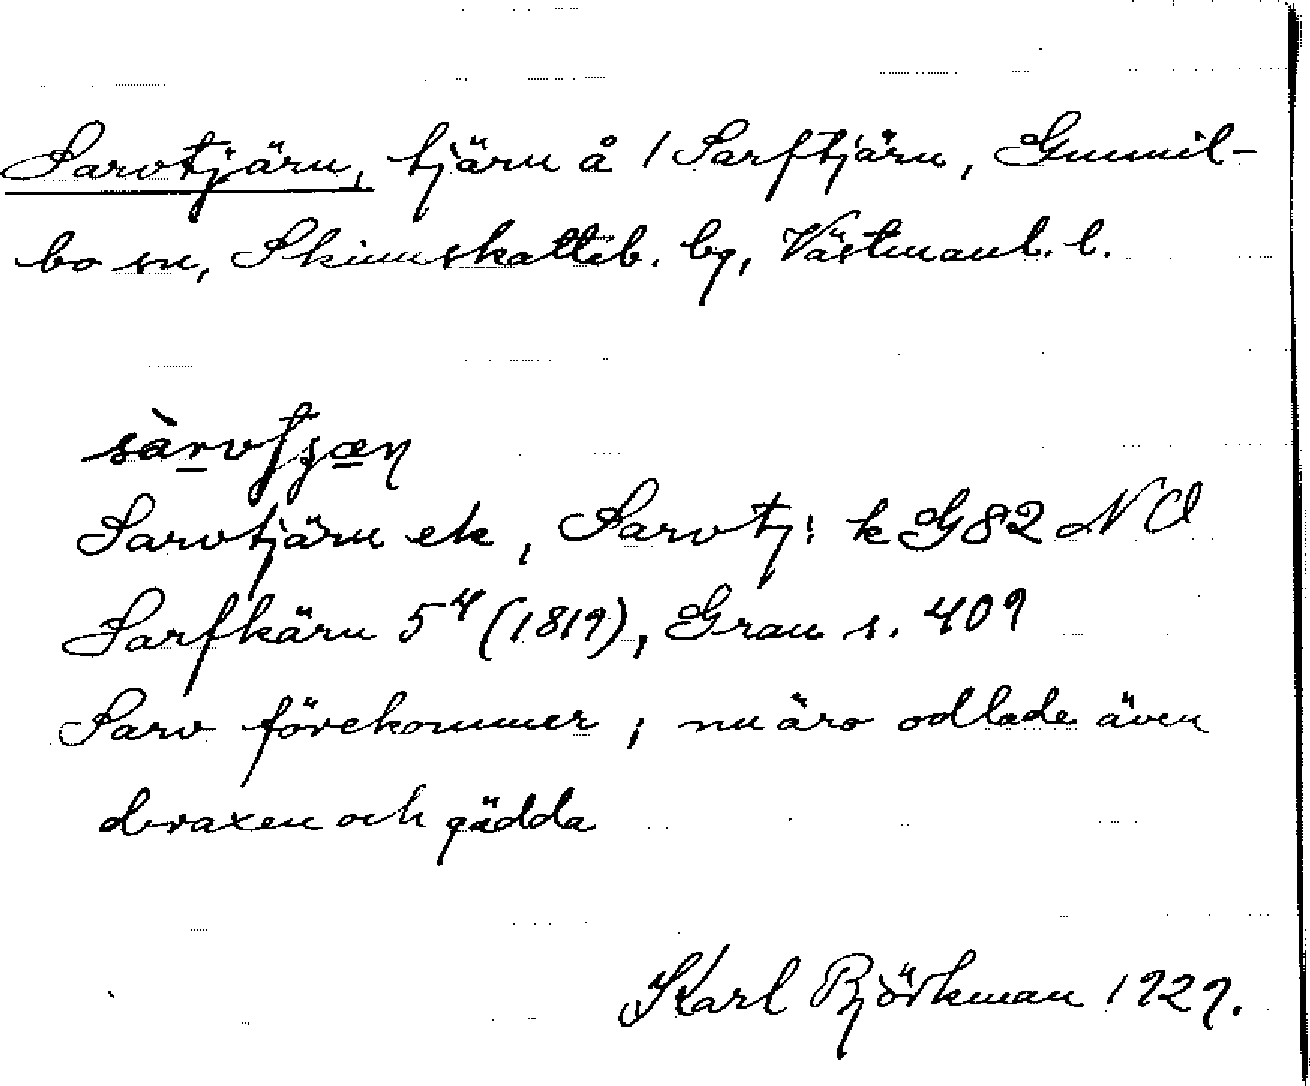 Sarvtjärn, tjärn å 1 Sarftjärn, Gunnil-
bo sn, Skinnskatteb. bg, Västmanl. l.
Sarvtjärn ek, Sarvtj: k G82 NO
Sarfkärn 5⁴ (1819), Grau s. 409
Sarv förekommer; nu äro odlade även
braxen och gädda
Karl Björkman 1929.